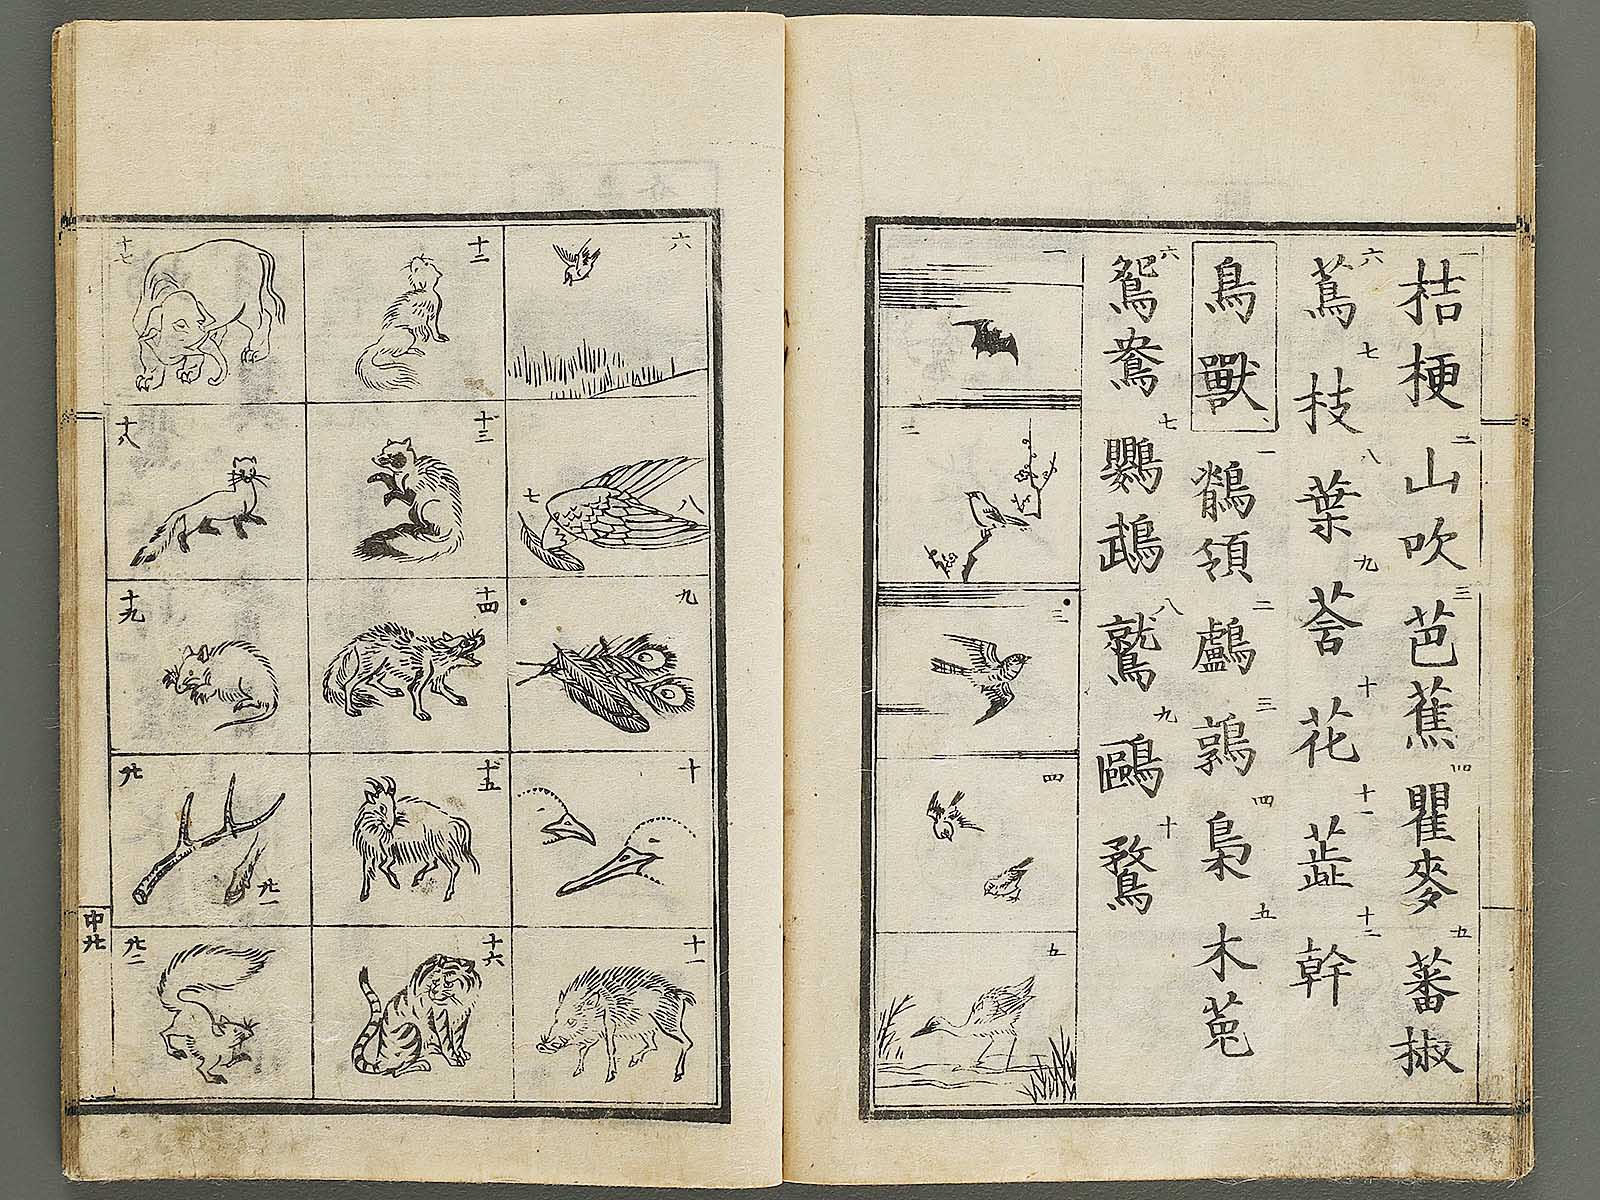 一 桔梗 二 山吹 三 芭蕉 四 瞿麥 五 蕃椒
六 蔦 七 枝 八 葉 九 荅 十 花 十一 蕋 十二 幹
鳥獸 一 鶺領 二 鸕 三 鶉 四 梟 五 木菟
六 鴛鴦 七 鸚鵡 八 鷲 九 鷗 十 鶩
一
二
三
四
五
六
七
八
九
十
十一
十二
十三
十四
十五
十六
十七
十八
十九
廿
廿一
廿二
中廿